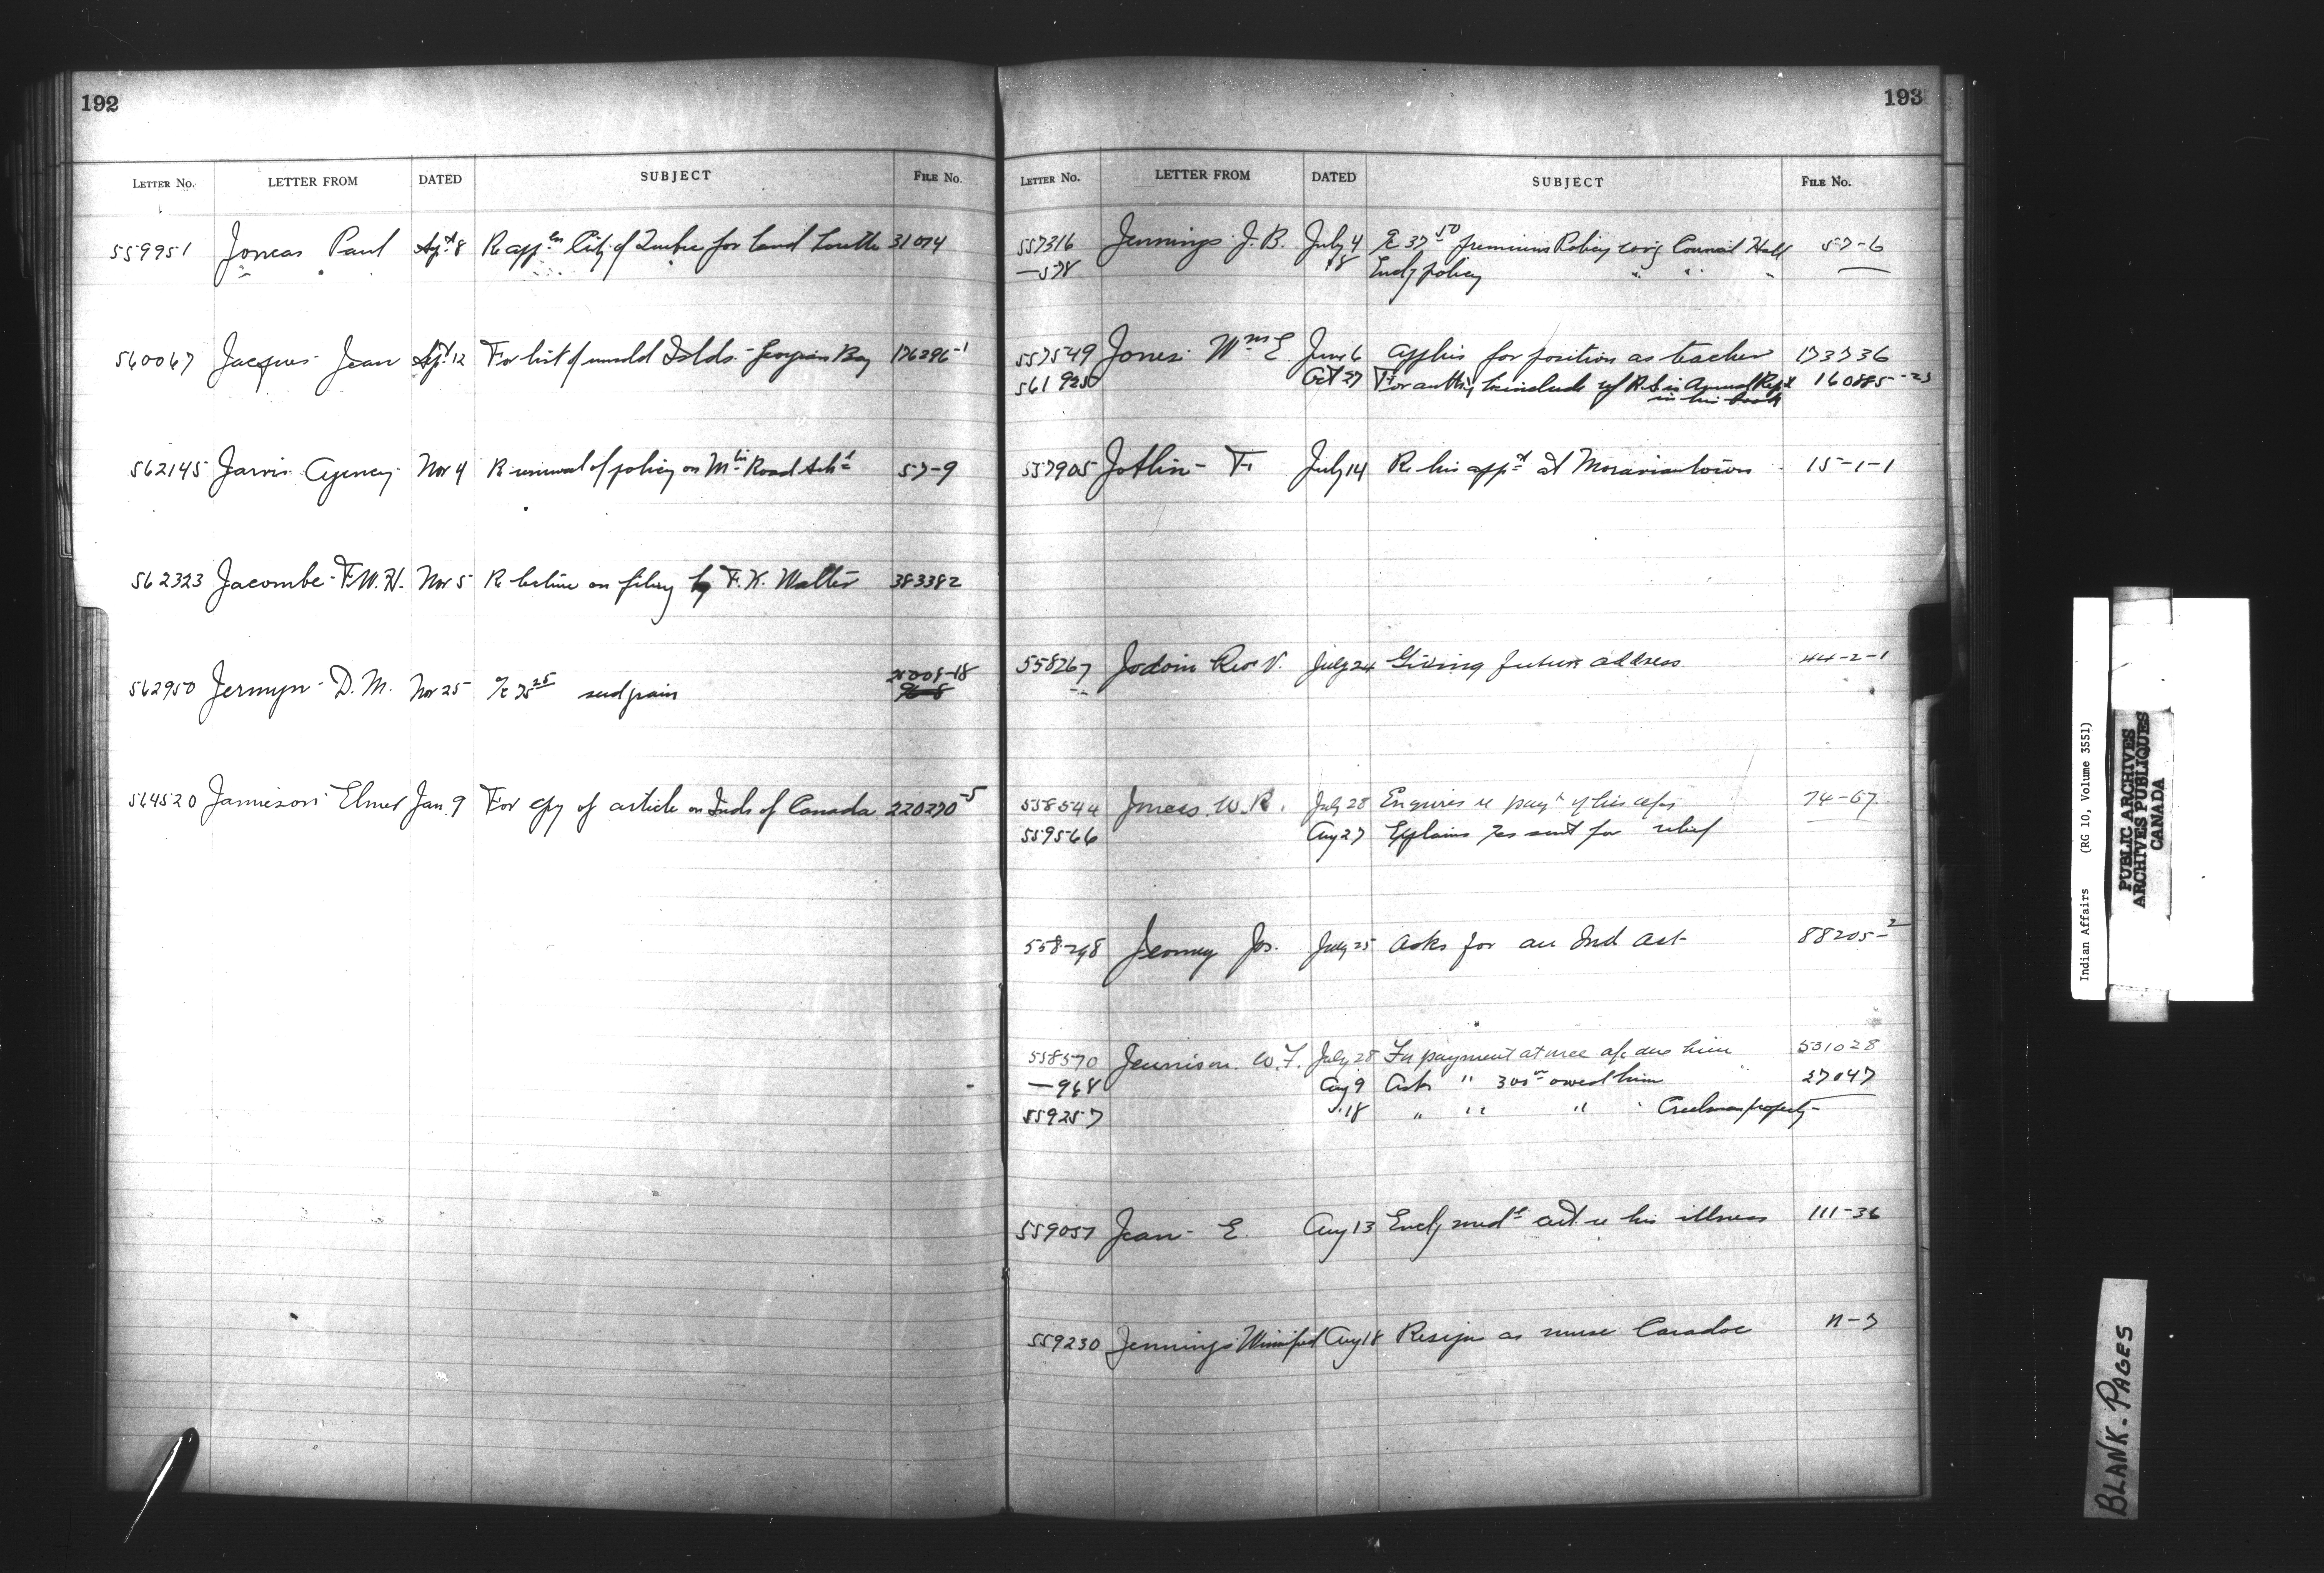 192
LETTER No. LETTER FROM DATED SUBJECT FILE No.
559951 Joncas Paul Sept 8 Re appln City of Quebec for land Lorette 31014
560067 Jacques Jean Sept 12 For list of unsold Islds. Georgian Bay 176296-1
562145 Jarvis Agency Nov 4 R renewal of policy on Mtn Road Schl 57-9
562323 Jacombe F.W.H. Nov 5 Re on filing by F.K. Walter 383382
562950 Jermyn D.M. Nov 25 a/c 75 25 seed grain 25008-18
564520 Jamieson Elmer Jan 9 For cpy of article on Inds of Canada 220270-5
193
LETTER No. LETTER FROM DATED SUBJECT FILE No.
557316 Jennings J.B. July 4 a/c 37 50 premium Policy covg Council Hall 57-6
—578 18 Encl policy " " "
557549 Jones Wm E June 6 Applies for position as teacher 173736
561925 Oct 27 For authy to include of R.S. in Annual Rept 160885-23
in his book
557905 Jotlin F. July 14 Re his appt at Moraviantown 15-1-1
558267 Jodoin Rev V. July 24 Giving future address 44-2-1
558544 Jones W.R. July 28 Enquires re payt of his a/cs 74-67
559566 Aug 27 Explains sent for relief
558298 Jos. July 25 Asks for an Ind Act 88205-2
558570 Jennison W.F. July 28 For payment at once a/c due him 531028
—968 Aug 9 Asks " 300 owed him 27047
559257 " 18 " " " Creelman property
559057 Jean E. Aug 13 Encl medl cert re his illness 111-36
559230 Jennings Winnifred Aug 18 Resign as nurse Caradoc 11-3
Indian Affairs (RG 10, Volume 3551)
PUBLIC ARCHIVES
ARCHIVES PUBLIQUES
CANADA
BLANK PAGES